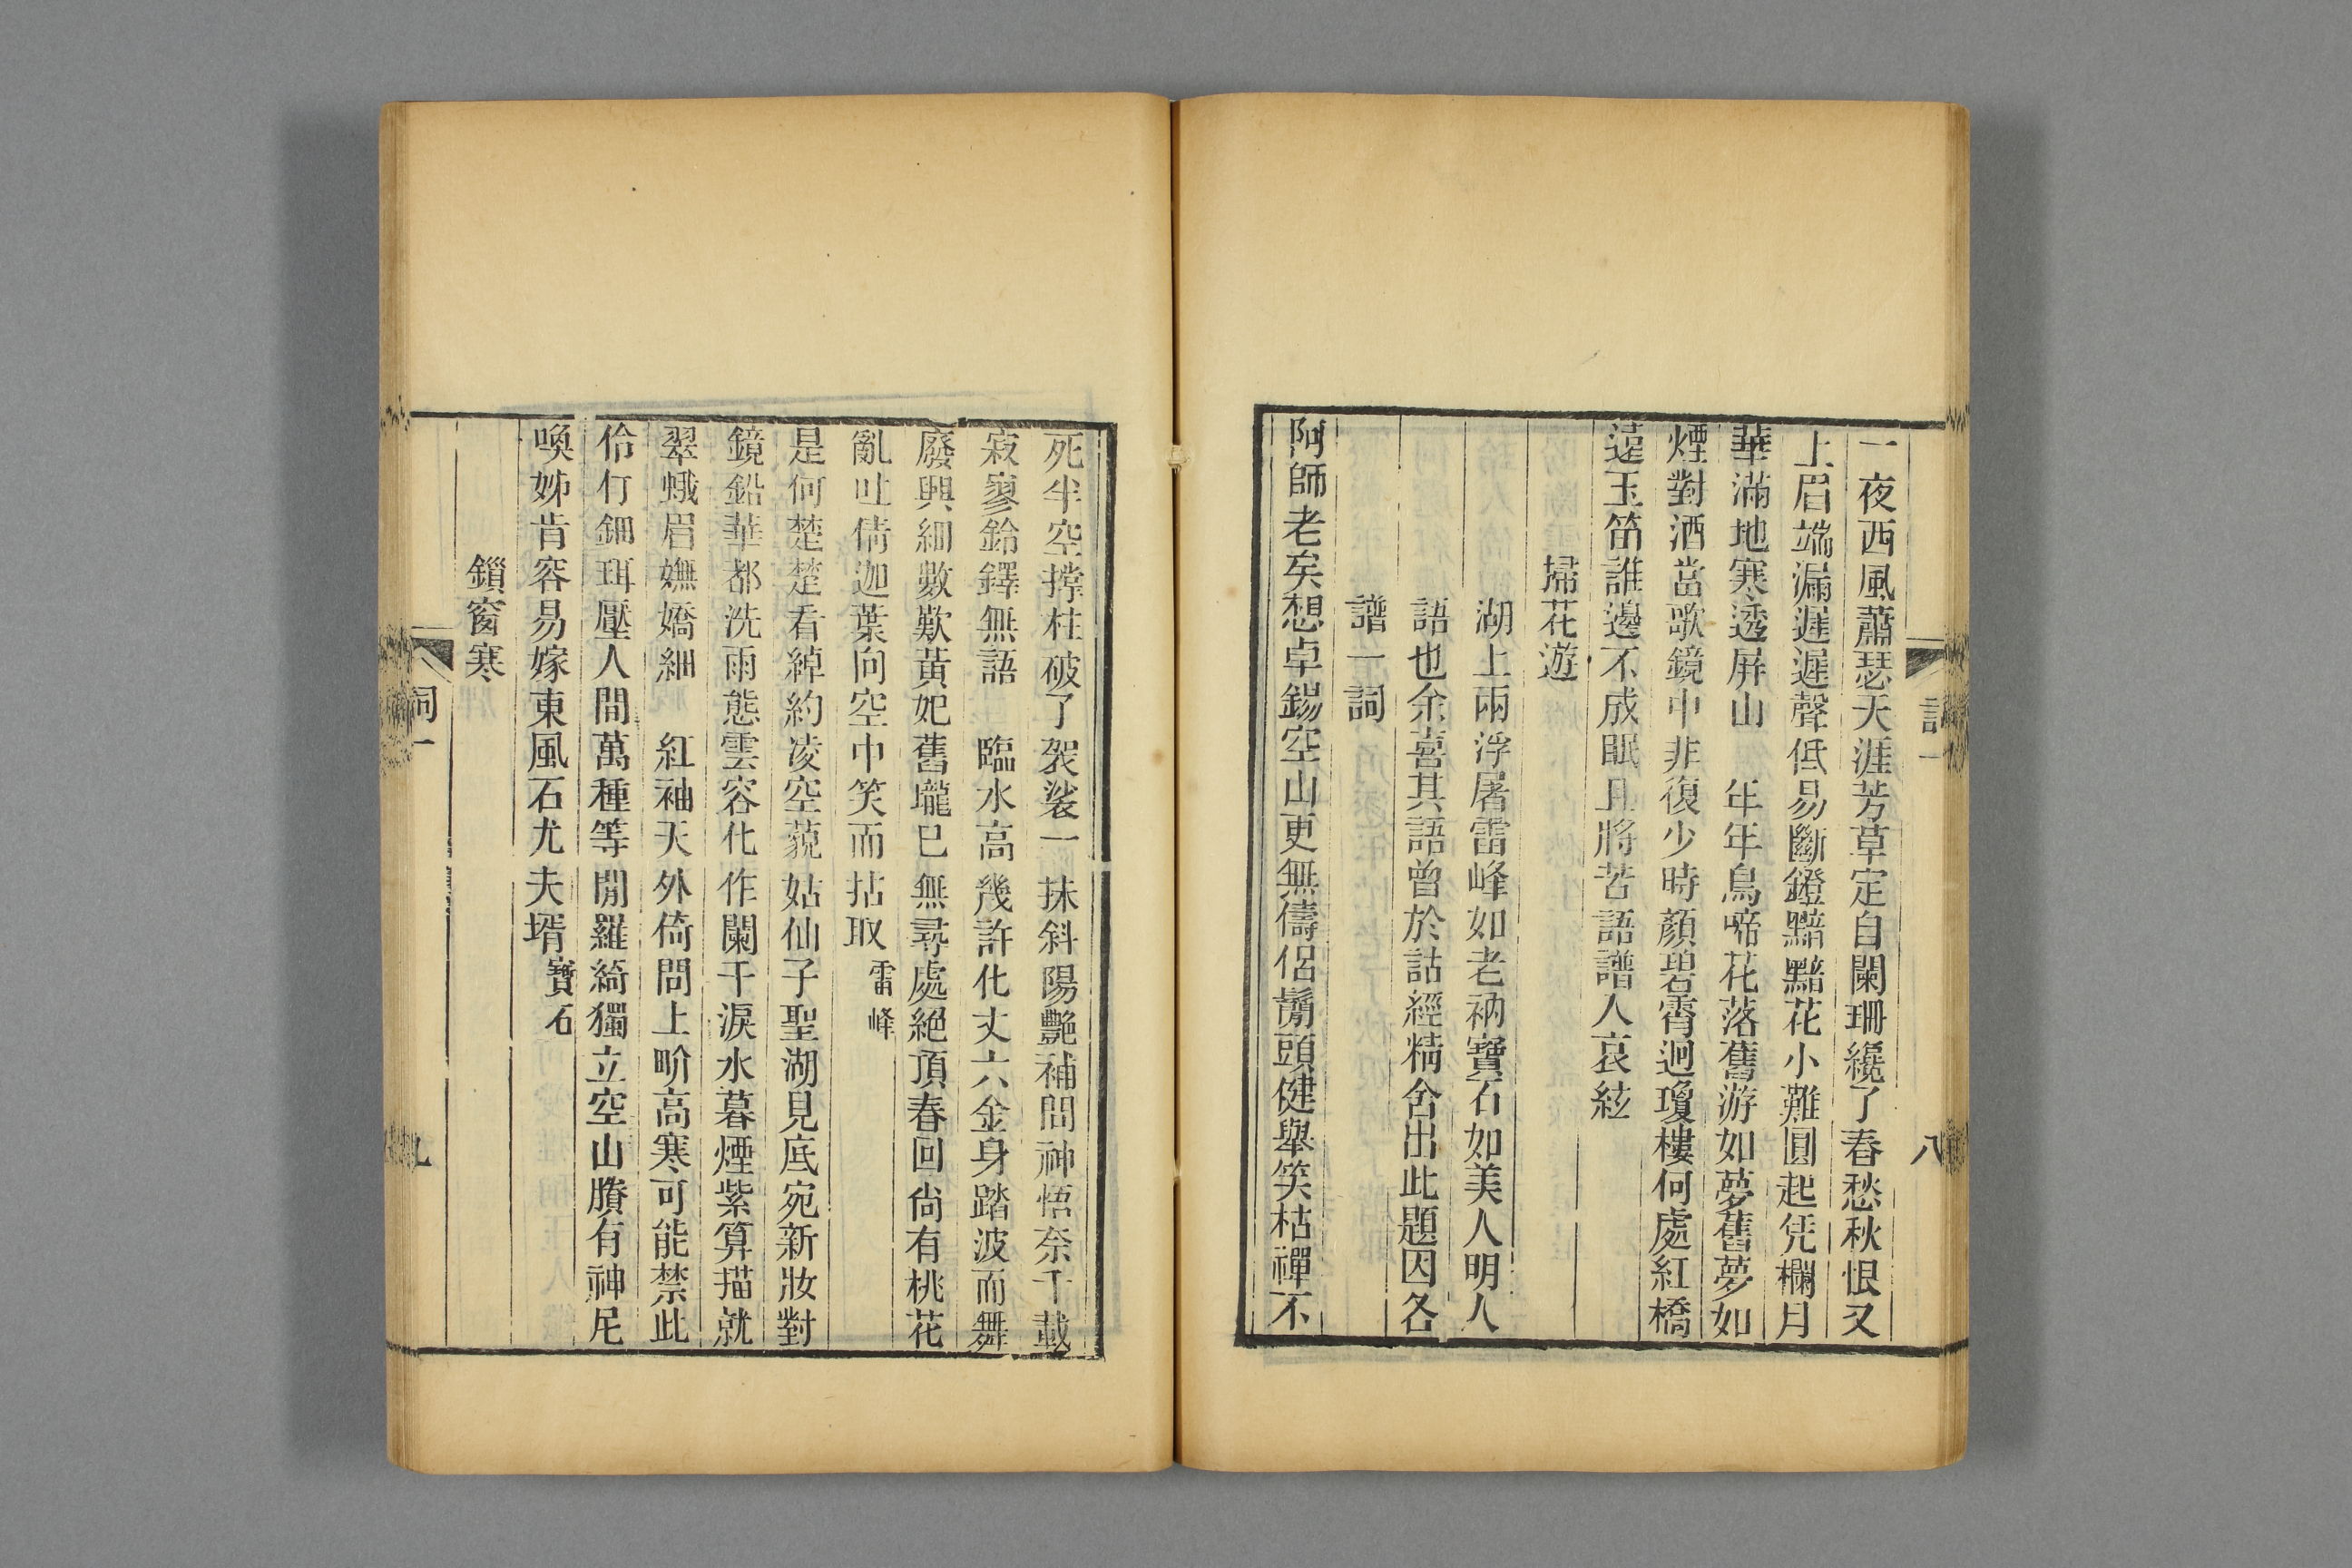 詞一
八
一夜西風蕭瑟天涯芳草定自闌珊纔了春愁秋恨又
上眉端漏遲遲聲低易斷鐙黯黯花小難圓起凭欄月
華滿地寒透屏山　年年鳥啼花落舊游如夢舊夢如
煙對酒當歌鏡中非復少時顏碧霄迥瓊樓何處紅橋
遠玉笛誰邊不成眠且將苦語譜入哀絃
掃花遊
湖上兩浮屠雷峰如老衲寶石如美人明人
語也余喜其語曾於詁經精舍出此題因各
譜一詞
阿師老矣想卓錫空山更無儔侶鬅頭健舉笑枯禪不
死半空撐柱破了袈裟一抹斜陽艷補問神悟奈千載
寂寥鈴鐸無語　臨水高幾許化丈六金身踏波而舞
廢興細數歎黃妃舊壠已無尋處絕頂春回尚有桃花
亂吐倩迦葉向空中笑而拈取雷峰
是何楚楚看綽約凌空藐姑仙子聖湖見底宛新妝對
鏡鉛華都洗雨態雲容化作闌干淚水暮煙紫算描就
翠蛾眉嫵嬌細　紅袖天外倚問上界高寒可能禁此
伶仃鈿珥壓人間萬種等閒羅綺獨立空山賸有神尼
喚姊肯容易嫁東風石尤夫壻寶石
鎖窗寒
詞一
九